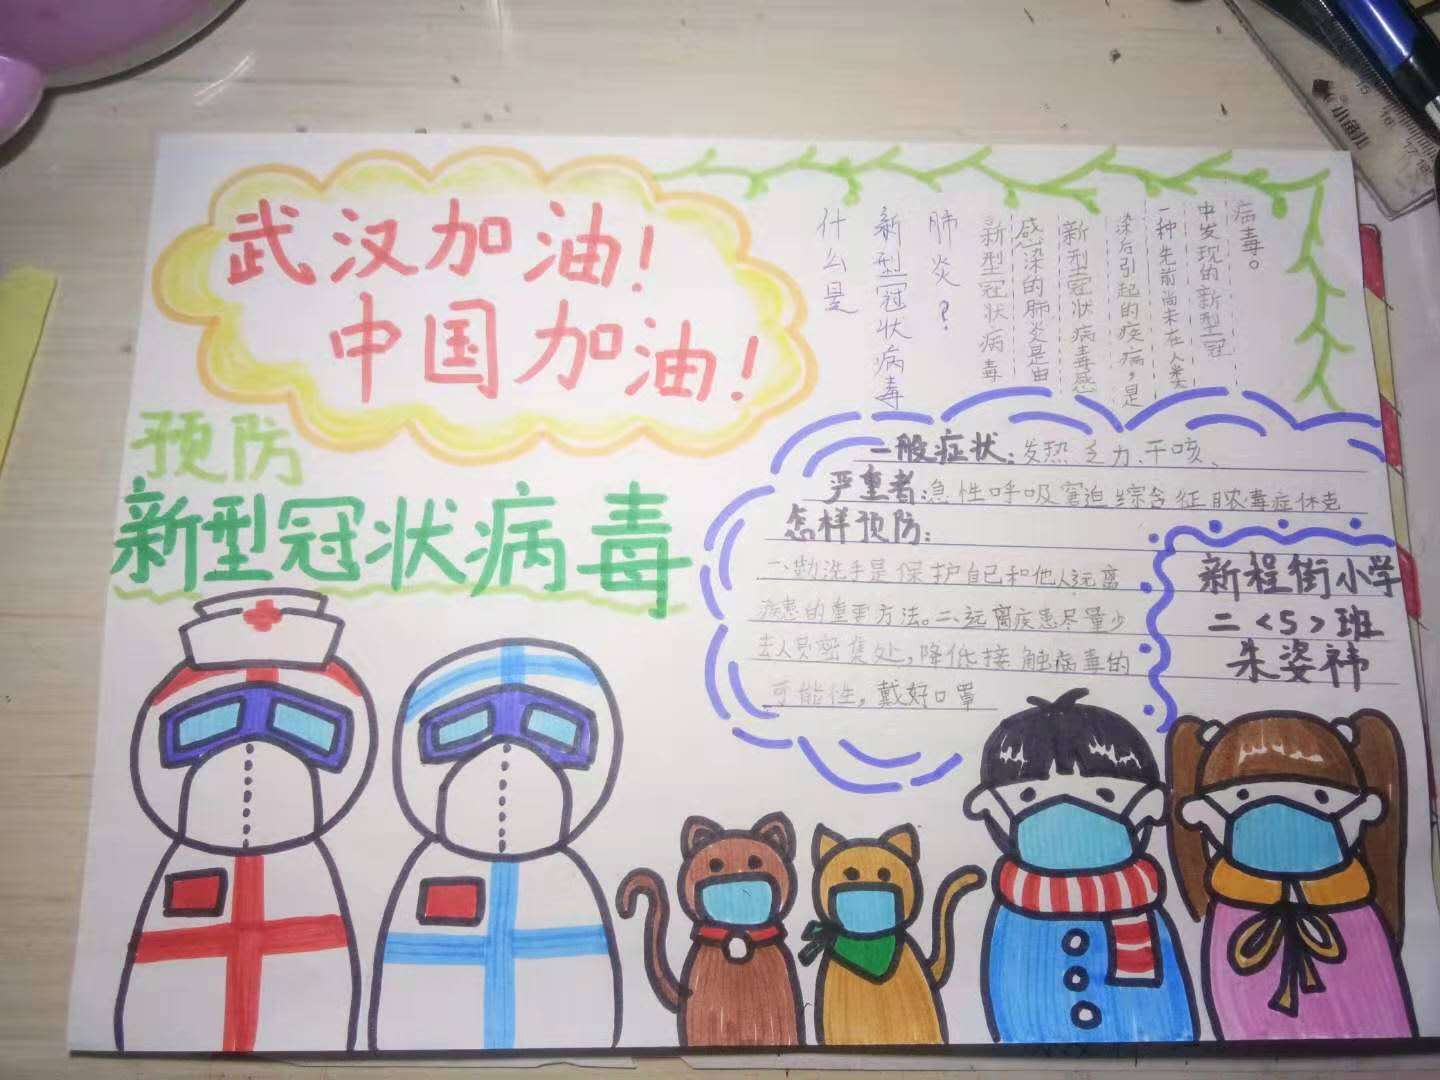 武汉加油！
中国加油！
预防
新型冠状病毒
什么是
新型冠状病毒
肺炎？
新型冠状病毒
感染的肺炎是由
新型冠状病毒感
染后引起的疾病，是
一种先前尚未在人类
中发现的新型冠
病毒。
一般症状：发热乏力、干咳、
严重者：急性呼吸窘迫综合征脓毒症休克
怎样预防：
一、勤洗手是保护自己和他人远离
疾患的重要方法。二、远离疾患尽量少
去人员密集处，降低接触病毒的
可能性，戴好口罩
新程街小学
二<5>班
朱姿祎
小鱼儿